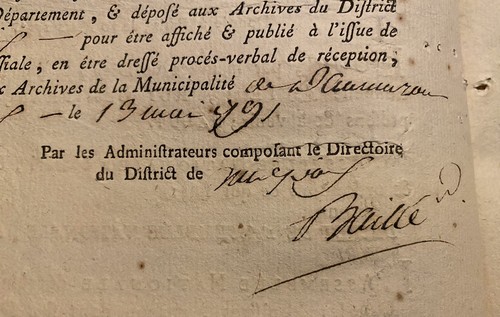 Département, & déposé aux Archives du District
— pour être affiché & publié à l'issue de
ssiale, en être dressé procés-verbal de réception;
x Archives de la Municipalité de
— le 13 mai 1791
Par les Administrateurs composant le Directoire
du District de
Baillé